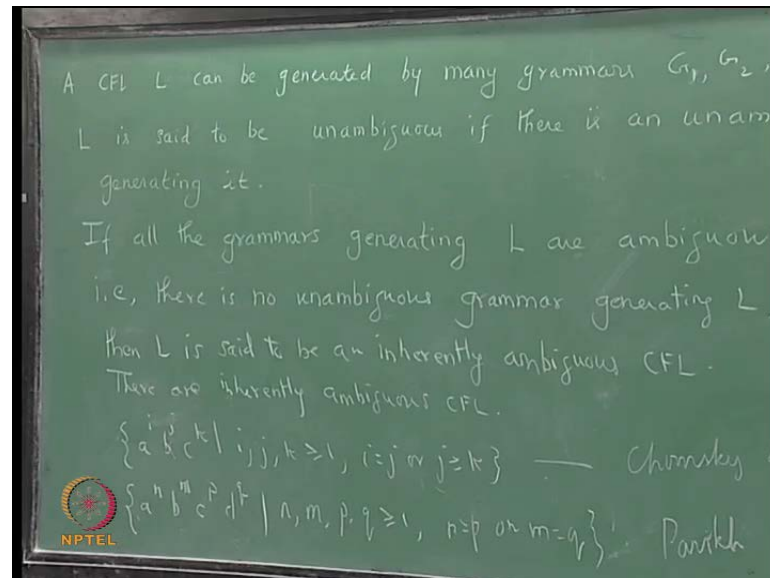 A CFL L can be generated by many grammars G₁, G₂,
L is said to be unambiguous if there is an unam
generating it.
If all the grammars generating L are ambiguou
i.e, there is no unambiguous grammar generating L
then L is said to be an inherently ambiguous CFL.
There are inherently ambiguous CFL.
{aⁱ bʲ cᵏ | i, j, k ≥ 1, i = j or j = k} — Chomsky
{aⁿ bᵐ cᵖ d^q | n, m, p, q ≥ 1, n = p or m = q} Parikh
NPTEL